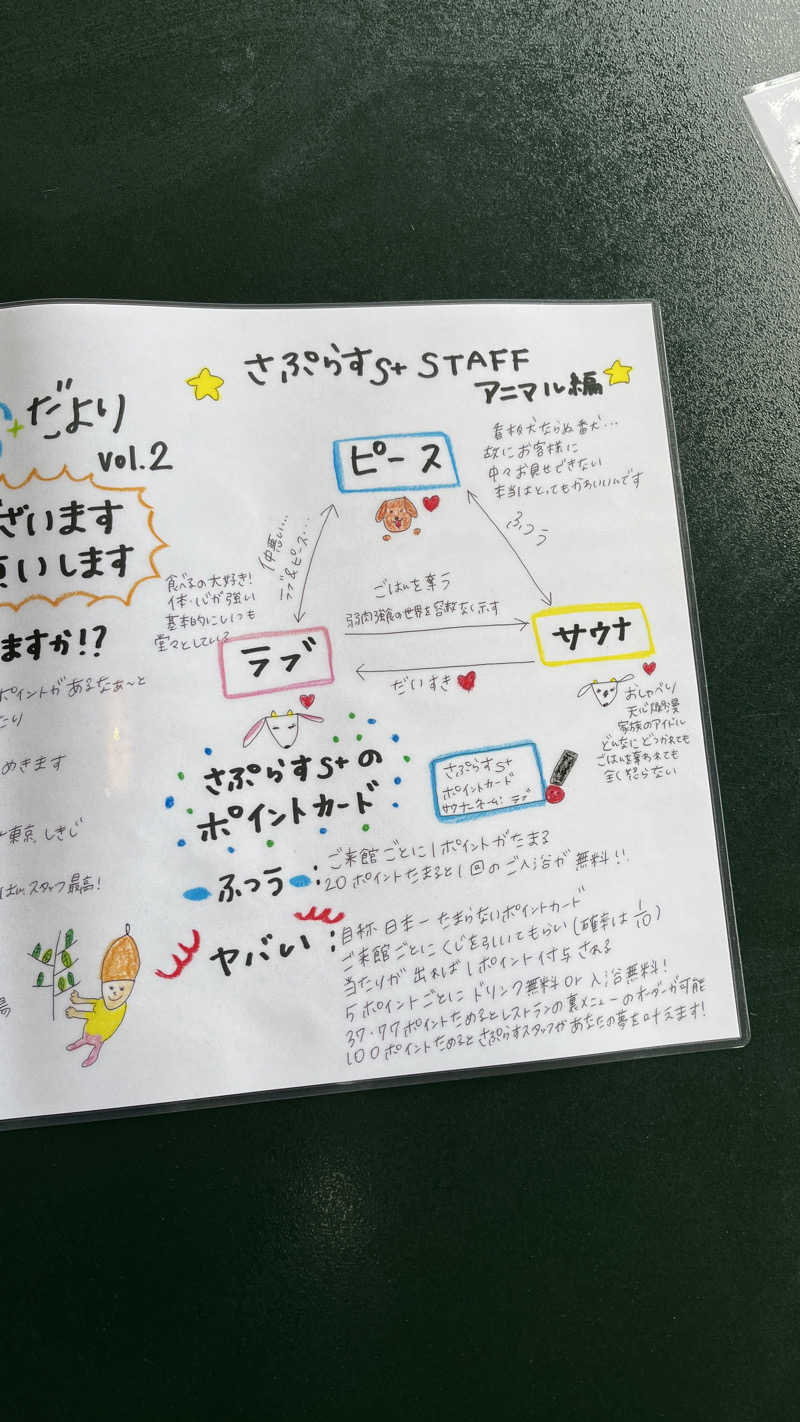 だより
vol.2
ざいます
いします
ますか!?
ポイントがあるなぁ〜と
たり
めきます
東京、しきじ
スタッフ最高!
さぷらすS+ STAFF
アニマル編
ピース
看板犬ならぬ番犬…
故にお客様に
中々お見せできない
本当はとってもかわいいんです
仲悪い…
ラブ&ピース…
ふつう
食べるの大好き!
体・心が強い
基本的にいつも
堂々としている
ごはんを奪う
弱肉強食の世界を容赦なく示す
ラブ
サウナ
だいすき
おしゃべり
天心爛漫
家族のアイドル
どんなにどつかれても
ごはんを奪われても
全く怒らない
さぷらすS+の
ポイントカード
さぷらすS+
ポイントカード
サウナーネーム: ラブ
ふつう:
ご来館ごとに1ポイントがたまる
20ポイントたまると1回のご入浴が無料!!
ヤバい:
自称 日本一 たまらないポイントカード
ご来館ごとにくじを引いてもらい(確率は1/10)
当たりが出れば1ポイント付与される
5ポイントごとにドリンク無料 or 入浴無料!
37・77ポイントためるとレストランの裏メニューのオーダーが可能
100ポイントためるとさぷらすスタッフがあなたの夢を叶えます!